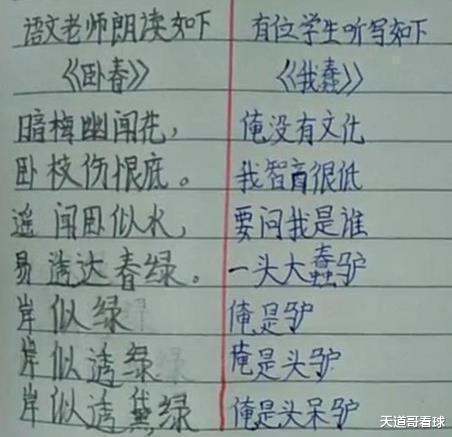 语文老师朗读如下
《卧春》
暗梅幽闻花，
卧枝伤恨底。
遥闻卧似水，
易透达春绿。
岸似绿
岸似透绿
岸似透黛绿
有位学生听写如下
《我蠢》
俺没有文化
我智商很低
要问我是谁
一头大蠢驴
俺是驴
俺是头驴
俺是头呆驴
天道哥看球